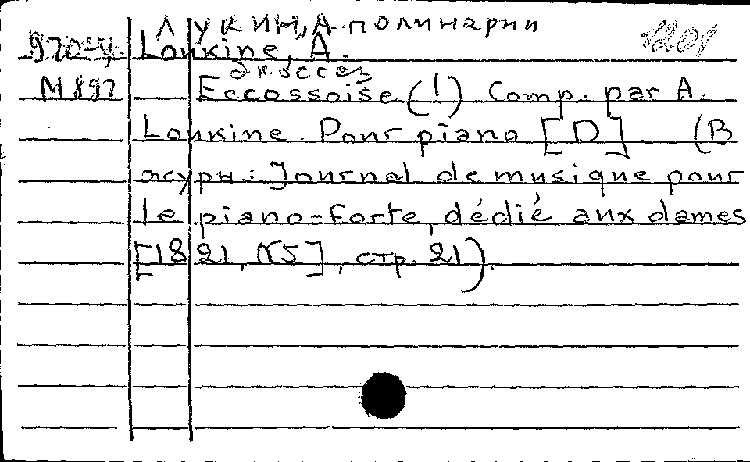 ЛУКИН, Аполинарии
970-4. Loukine, A. 1201
экоссез
М 897 Eccossoise (!) Comp. par A.
Loukine. Pour piano [D] (В
журн: Journal de musique pour
le piano-forte, dédié aux dames
[1821, №5], стр. 21).